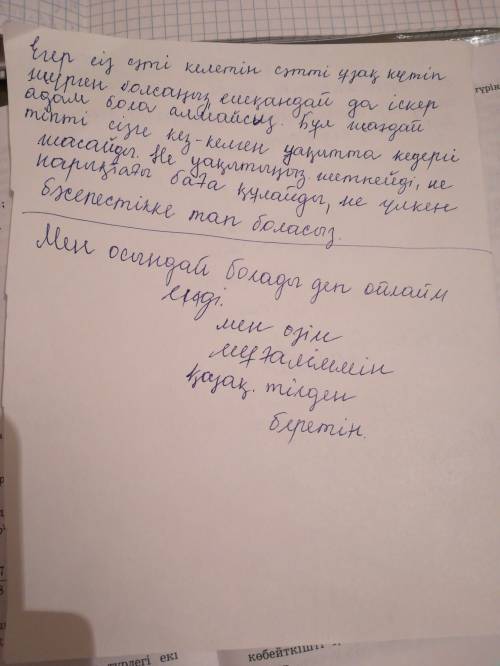 Егер сіз сәті келетін сәтті ұзақ күтіп
жүрген болсаңыз, ешқандай да іскер
адам бола алмайсыз. Бұл жағдай
тіпті сізге кез-келген уақытта кедергі
жасайды. Не уақытыңыз жетпейді, не
нарықтағы баға құлайды, не үлкен
бәсекелестікке тап боласыз.
Мен осындай болады деп ойлаймын
мен өзім
мұғаліммін
қазақ тілден
беретін.
түрлегі екі
көбейткішті